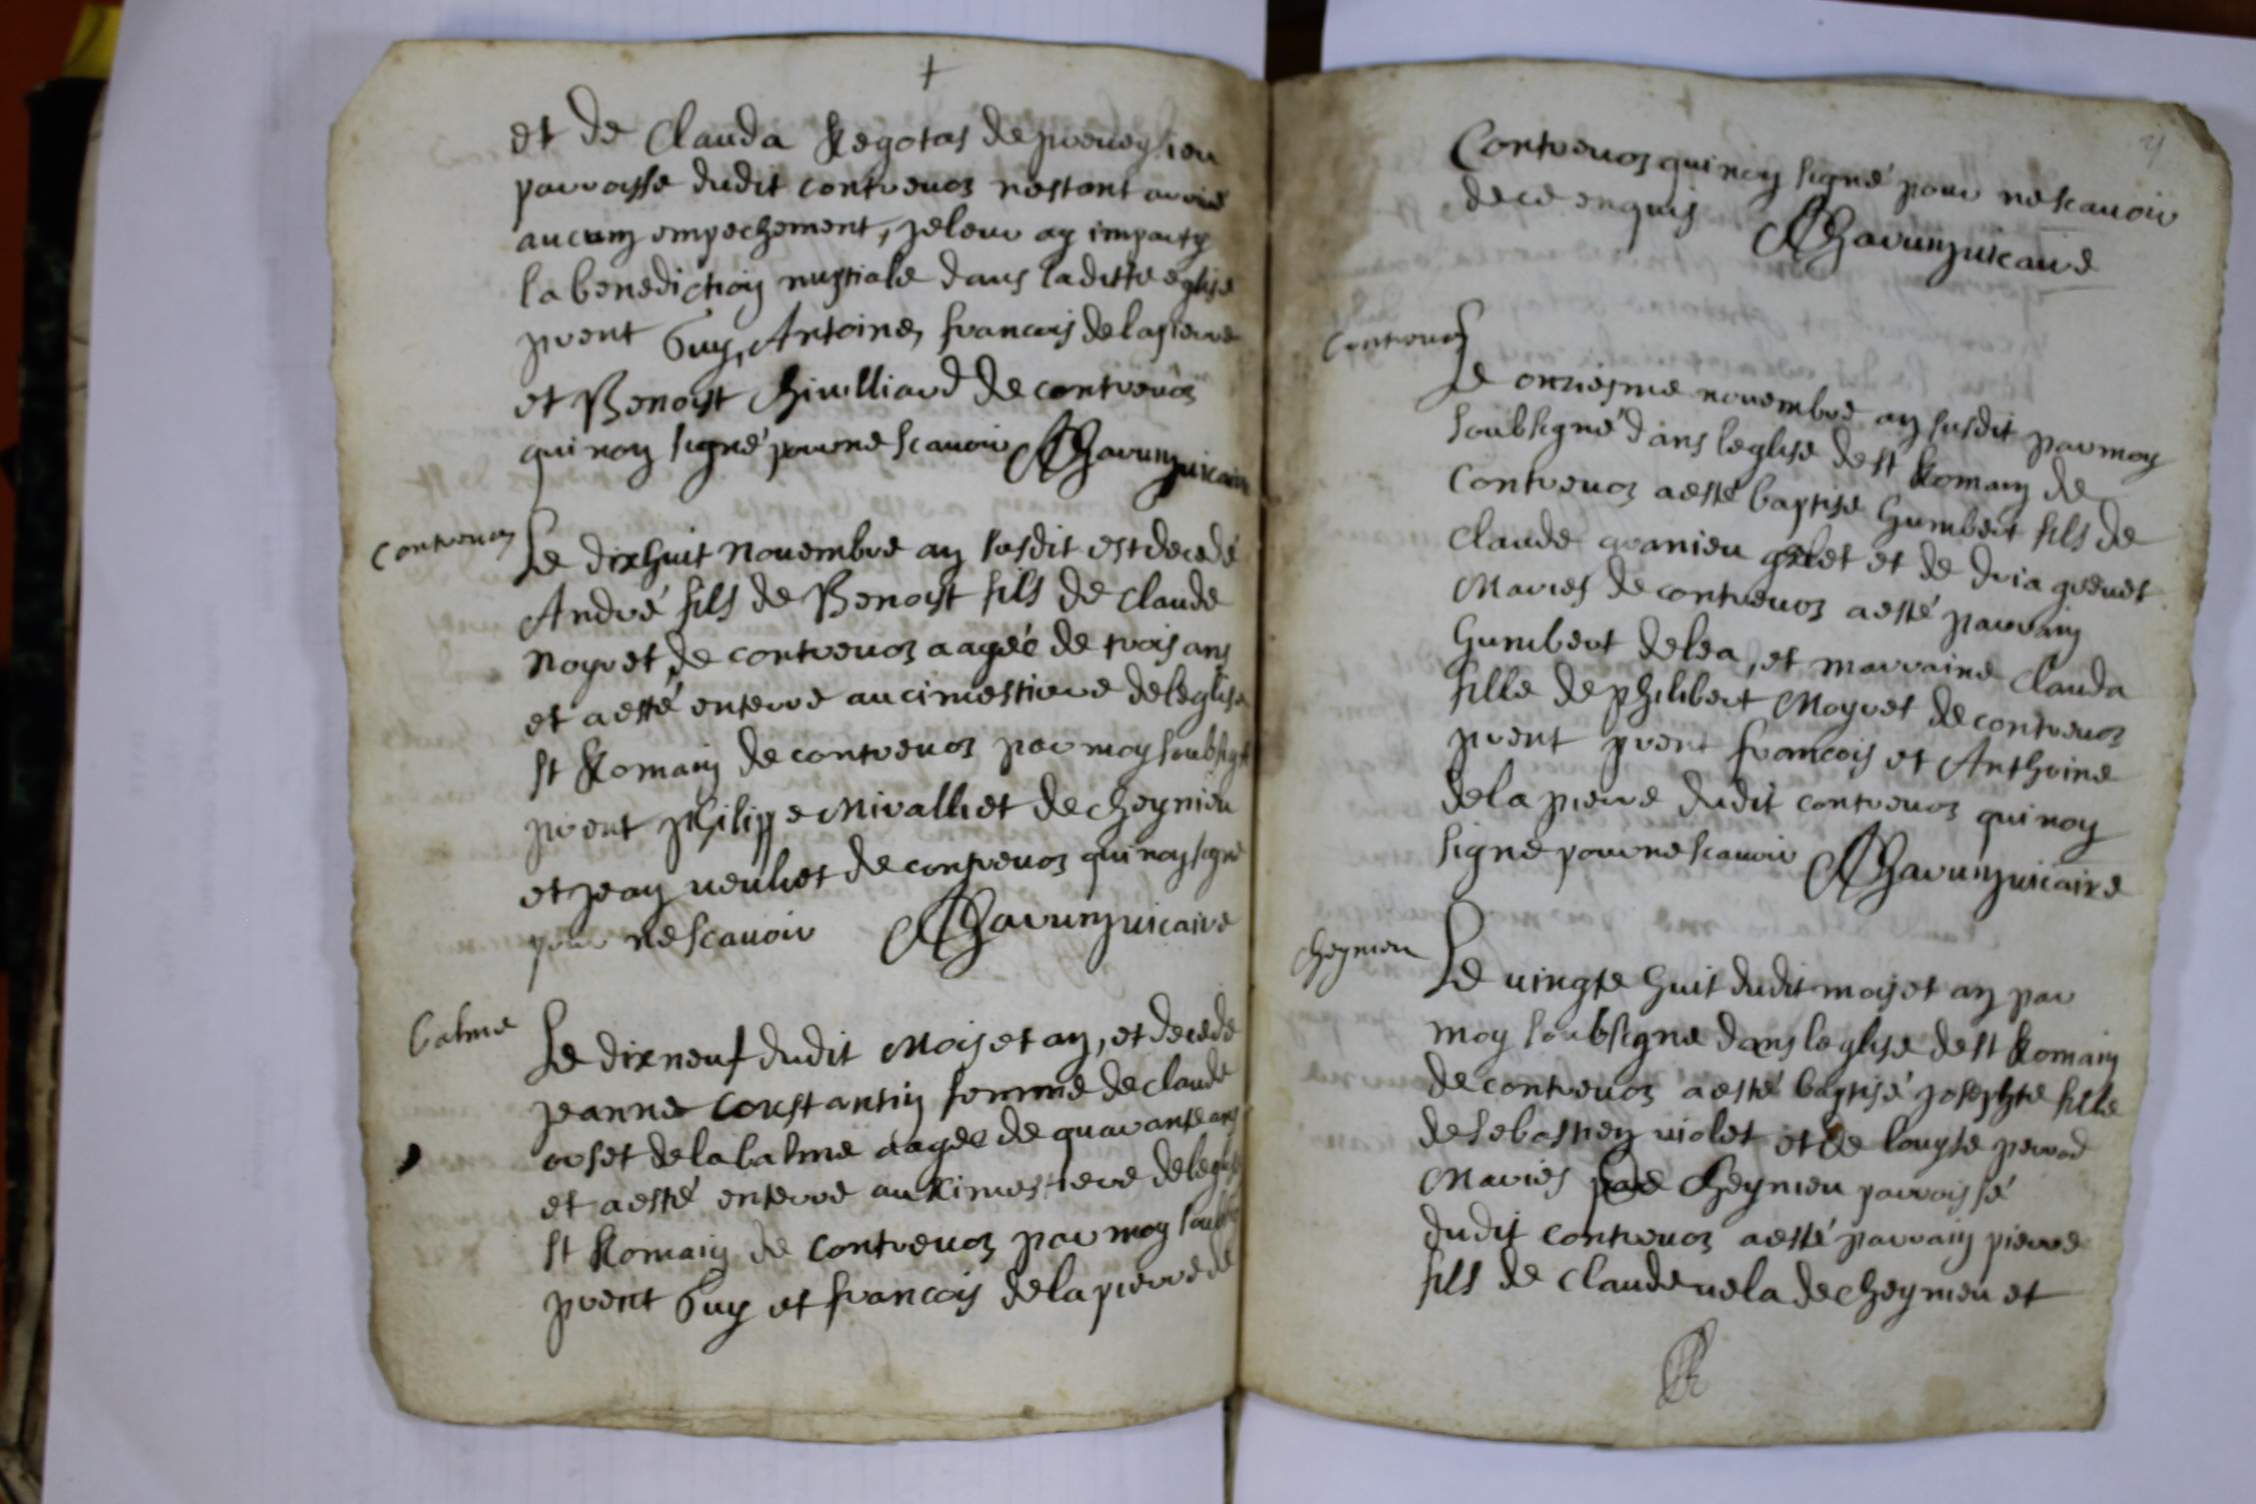 +
et de Clauda Regotas de preveylieu
parroisse dudit contrevoz nestant arrivé
aucung empechement, je leur ay imparty
la benediction nuptiale dans laditte eglise
pvent Guy, Antoine, francois de la pierre
et Benoist Chivilliard de contrevoz
qui non signé pour ne scavoir Charvin vicaire
contrevoz
Le dixhuit novembre an susdit est decedé
André fils de Benoist fils de Claude
Noyret, de contrevoz aagéé de trois ans
et a esté enterre au cimestiere de leglise
st Romain de contrevoz par moy soubsigé
pvent philippe Mivalliet de cheynieu
et jean veuliet de contrevoz qui non signé
pour ne scavoir Charvin vicaire
balme
Le dixneuf dudit Mois et an, et decede
jeanne Constantin femme de claude
orset de la balme aagéé de quarante ans
et a esté enterre au cimestiere de leglise
st Romain de contrevoz par moy soubsi
pvent Guy et francois de la pierre de
Contrevoz qui non signé pour ne scavoir
de ce enquis Charvin vicaire
Contrevoz
Le onziesme novembre an susdit par moy
soubsigné dans leglise de st Romain de
Contrevoz a esté baptise humbert fils de
claude granieu et de dria grenet
Mariés de contrevoz a esté parrain
humbert delea, et marraine Clauda
fille de philibert Noyret de contrevoz
pvent pvent francois et Anthoine
de la pierre dudit contrevoz qui non
signé pour ne scavoir Charvin vicaire
cheynieu
Le vingte huit dudit mois et an par
moy soubsigne dans leglise de st Romain
de contrevoz a esté baptisé josephte fille
de sebastien violet et de louyse perrod
Mariés de Cheynieu parroissé
dudit contrevoz a esté parrain pierre
fils de claude vela de cheynieu et